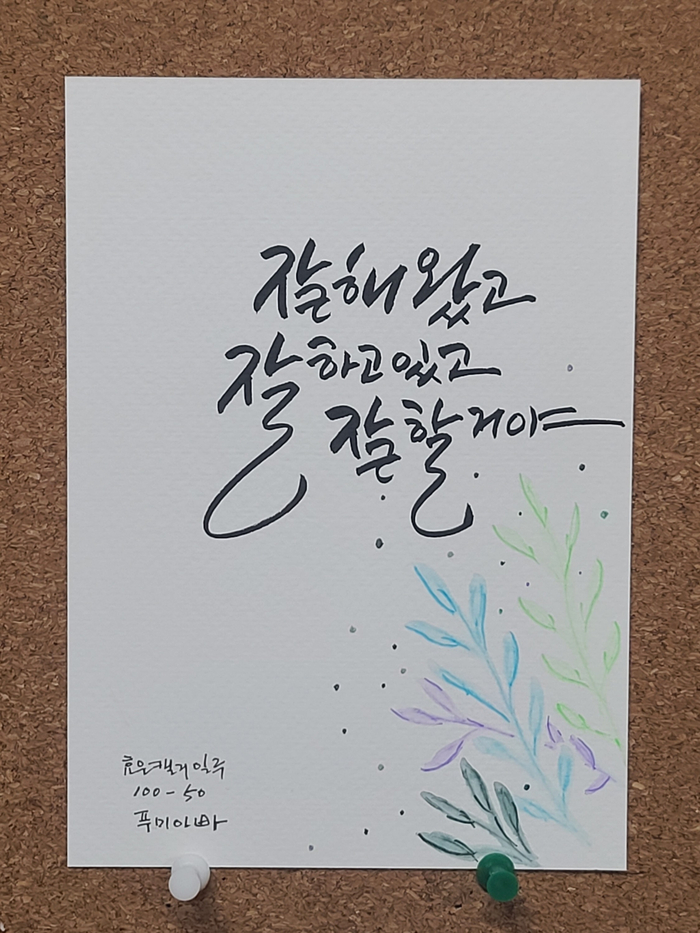 잘해왔고
잘하고있고
잘할거야
효은캘리일주
100-50
푸미아빠